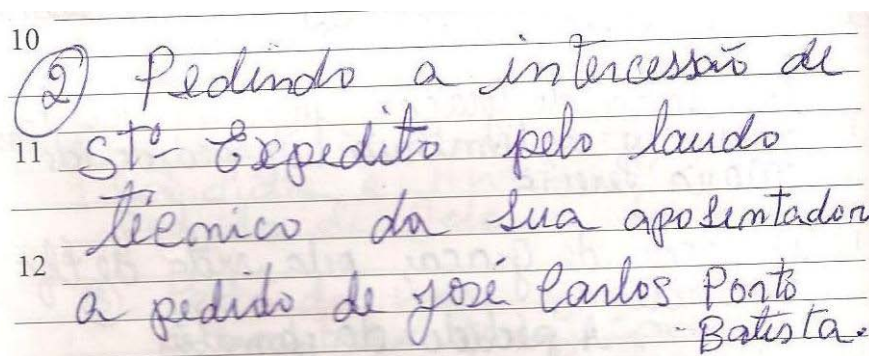 10
② Pedindo a intercessão de
11 Stº Expedito pelo laudo
técnico da sua aposentador
12
a pedido de José Carlos Porto
Batista.